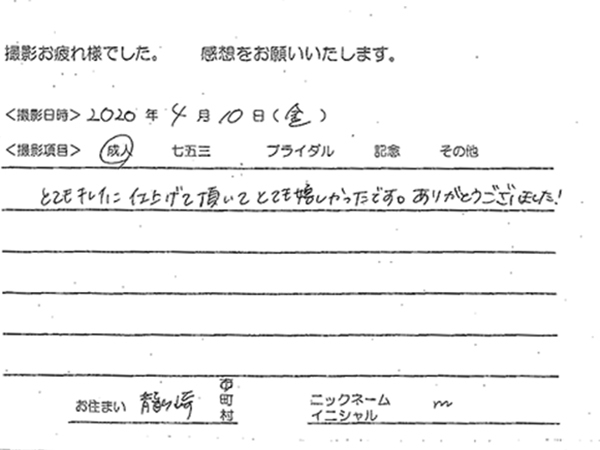 撮影お疲れ様でした。 感想をお願いいたします。
<撮影日時> 2020 年 4 月 10 日 (金)
<撮影項目> 成人 七五三 ブライダル 記念 その他
とてもキレイに仕上げて頂いてとても嬉しかったです。ありがとうございました!
お住まい 龍ヶ崎 市 町 村 ニックネーム イニシャル m